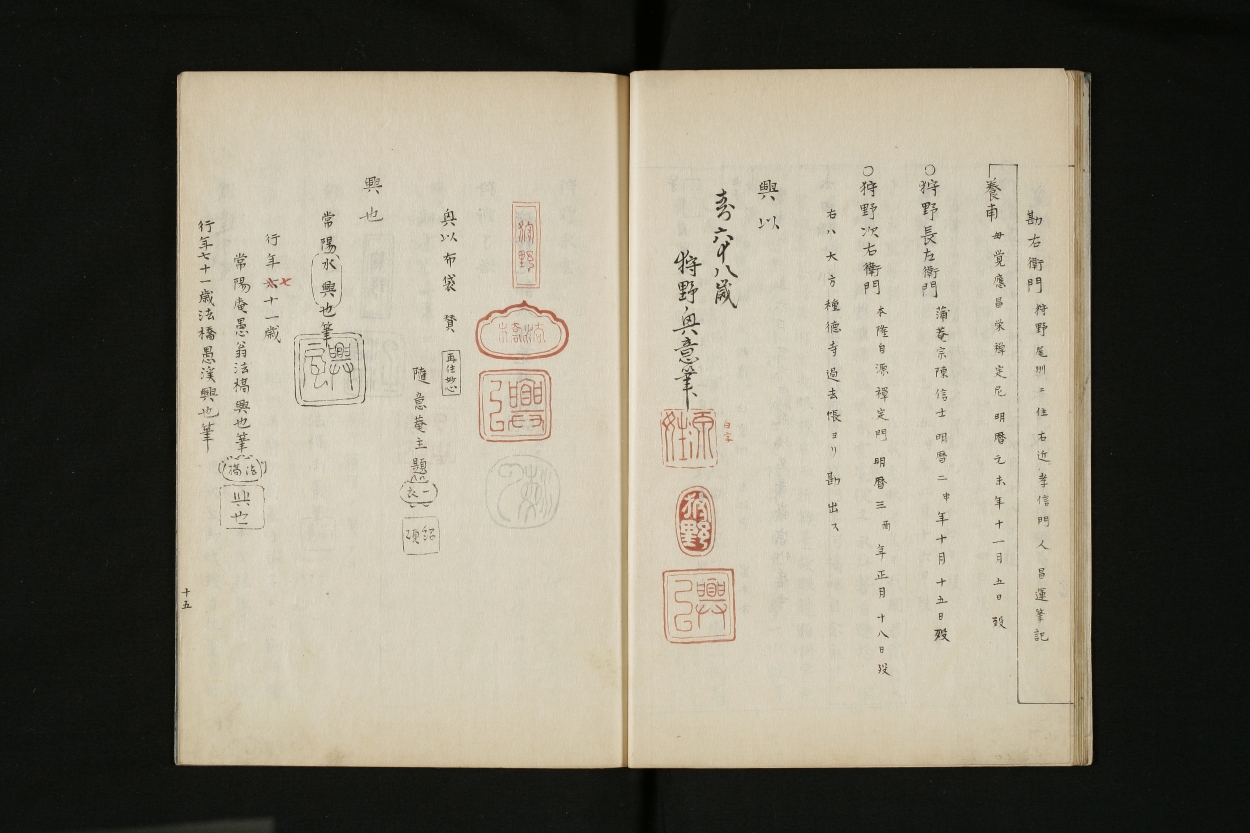 勘右衛門 狩野尾州ニ住右近孝信門人昌運筆記
養甫 母覚應昌栄禅定尼明暦元未年十一月五日歿
〇狩野長左衛門 蒲菴宗陳信士明暦二申年十月十五日歿
〇狩野次右衛門 本隆自源禅定門明暦三酉年正月十八日歿
右ハ大方種徳寺過去帳ヨリ勘出ス
興以
寿六十八歳
狩野興意筆
白字
狩野
狩野
興以布袋賛
再住妙心
随意菴主題
興也
常陽水興也筆
行年七十一歳
常陽庵愚翁法橋興也筆
法橋
興也
行年七十一歳法橋愚渓興也筆
十五